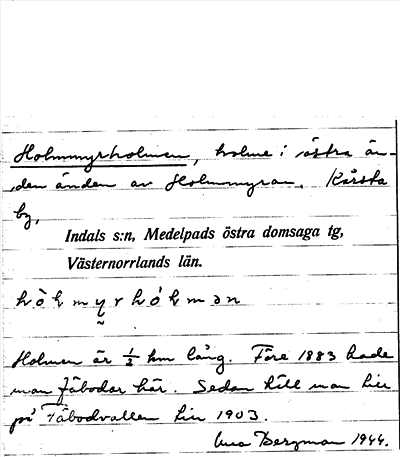 Holmmyrholmen, holme i östra än-
den änden av Holmmyran. Kårsta
by,
Indals s:n, Medelpads östra domsaga tg,
Västernorrlands län.
Holmen är ½ km lång. Före 1883 hade
man fäbodar här. Sedan höll man hii
på Fäbodvallen hii 1903.
Bergman 1944.